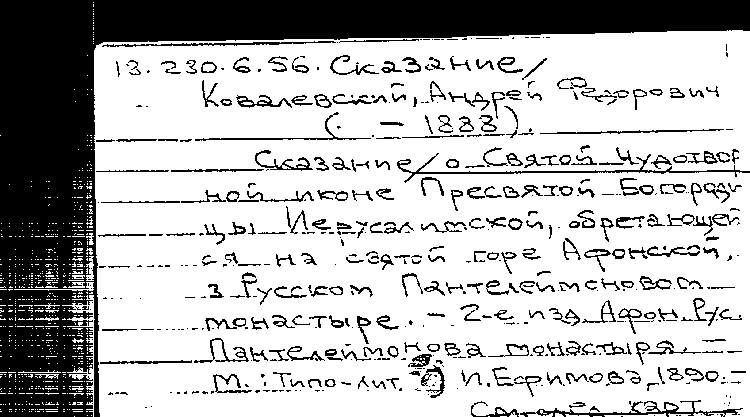 13.230.6.56. Сказание/
Ковалевский, Андрей Федорович
( – 1888).
Сказание/о Святой Чудотвор
ной иконе Пресвятой Богороди
цы Иерусалимской, обретающей
ся на святой горе Афонской,
в Русском Пантелеймоновом
монастыре. – 2-е изд. Афон. Рус.
Пантелеймонова монастыря. –
М.: Типо-лит. И. Ефимова, 1890. –
карт